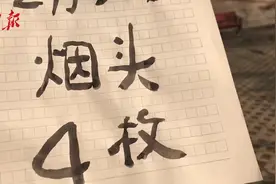 报
烟头
4枚